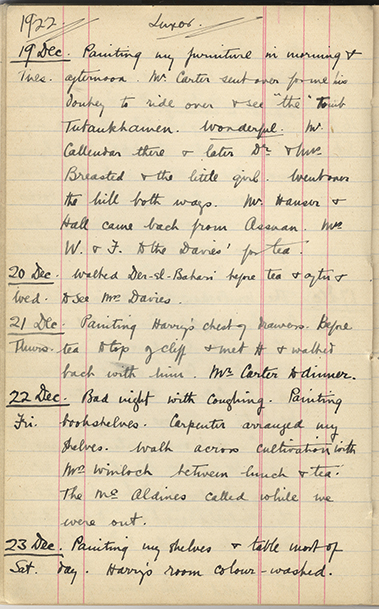 1922 Luxor.
19 Dec. Painting my furniture in morning &
Tues. afternoon. Mr. Carter sent over for me his
Donkey to ride over & see "the" tomb
Tutankhamen. Wonderful. Mr.
Callender there & later Dr. & Mrs
Breasted & the little girl. Went over
the hill both ways. Mr. Hauser &
Hall came back from Assuan. Mrs
W. & F. to the Davies' for tea.
20 Dec. Walked Der-el-Bahari before tea & after
Wed. to see Mrs Davies.
21 Dec. Painting Harry's chest of drawers. Before
Thurs. tea to top of cliff & met H & walked
back with him. Mr. Carter to dinner.
22 Dec. Bad night with coughing. Painting
Fri. bookshelves. Carpenter arranged my
shelves. Walk across cultivation with
Mrs Winlock between lunch & tea.
The Mc Aldines called while we
were out.
23 Dec. Painting my shelves & table most of
Sat. day. Harry's room colour-washed.